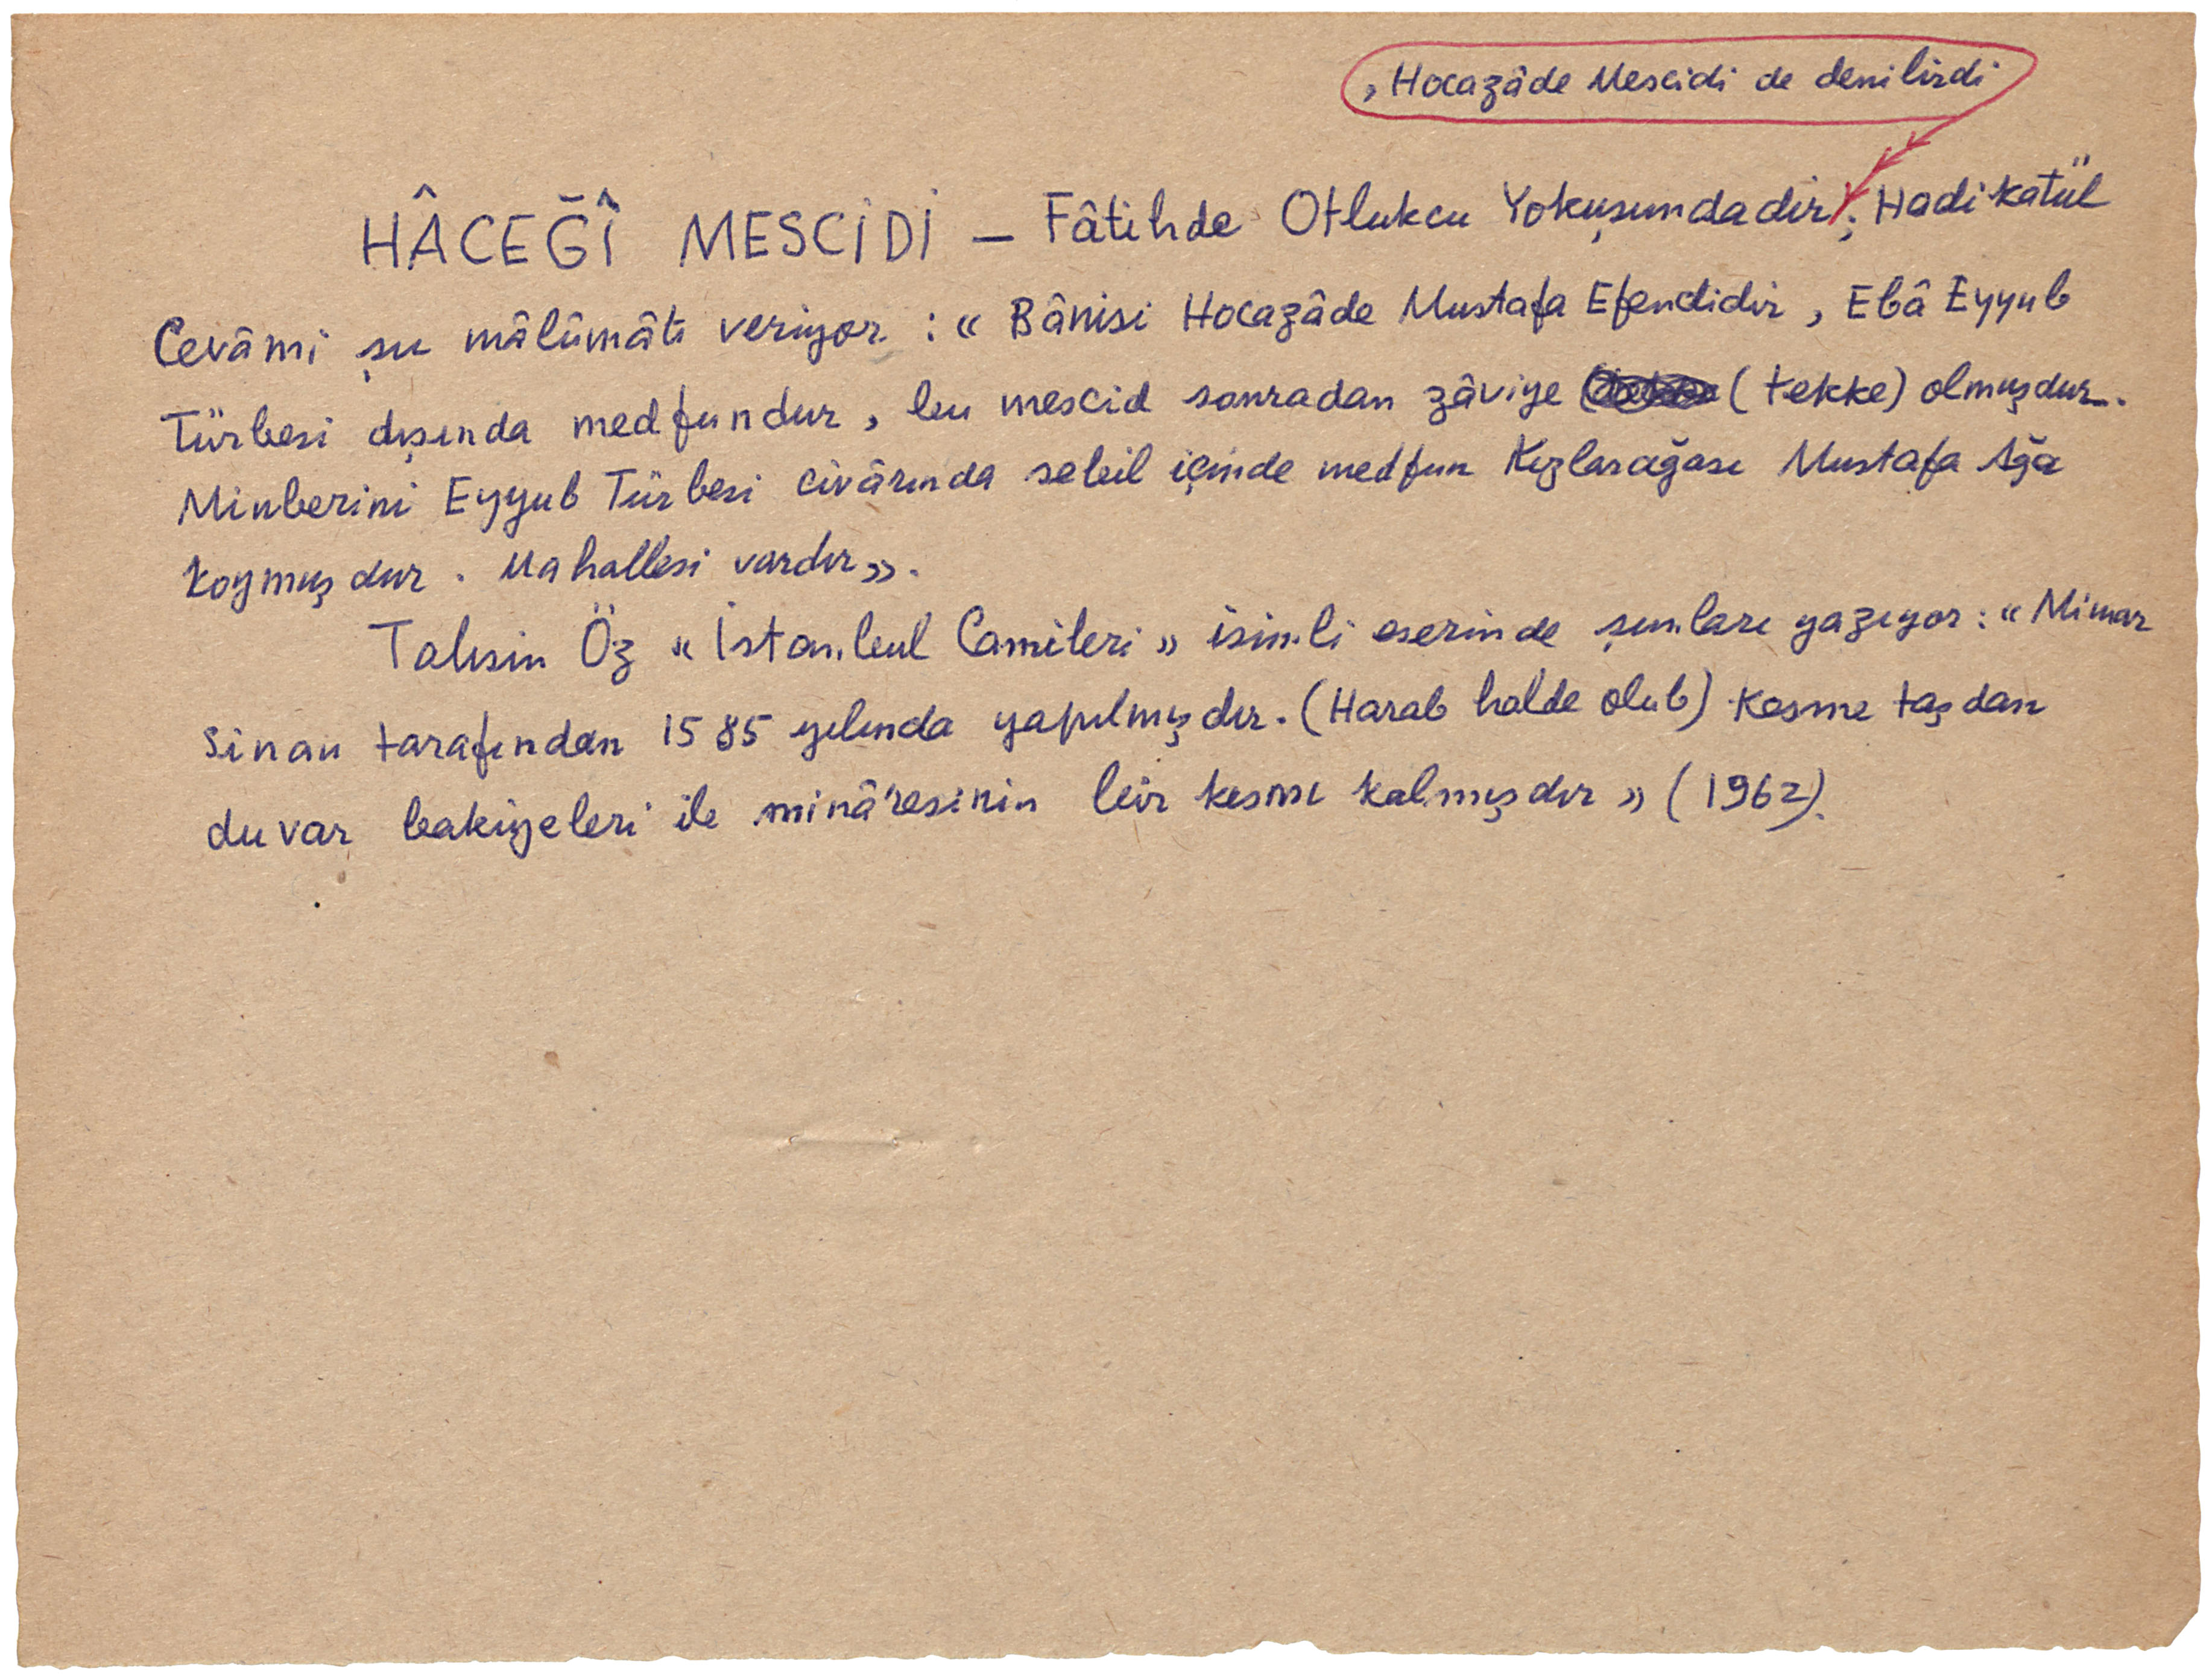 , Hocazâde Mescidi de denilirdi
HÂCEĞÎ MESCİDİ — Fâtihde Otlukcu Yokuşundadır; Hadikatül
Cevâmi şu mâlûmâtı veriyor : « Bânisi Hocazâde Mustafa Efendidir, Ebâ Eyyub
Türbesi dışında medfundur, bu mescid sonradan zâviye (tekke) olmuşdur.
Minberini Eyyub Türbesi civârında sebil içinde medfun Kızlarağası Mustafa Ağa
koymuşdur. Mahallesi vardır».
Tahsin Öz « İstanbul Camileri » isimli eserinde şunları yazıyor : « Mimar
Sinan tarafından 1585 yılında yapılmışdır. (Harab halde olub) Kesme taşdan
duvar bakiyeleri ile minâresinin bir kısmı kalmışdır » (1962).